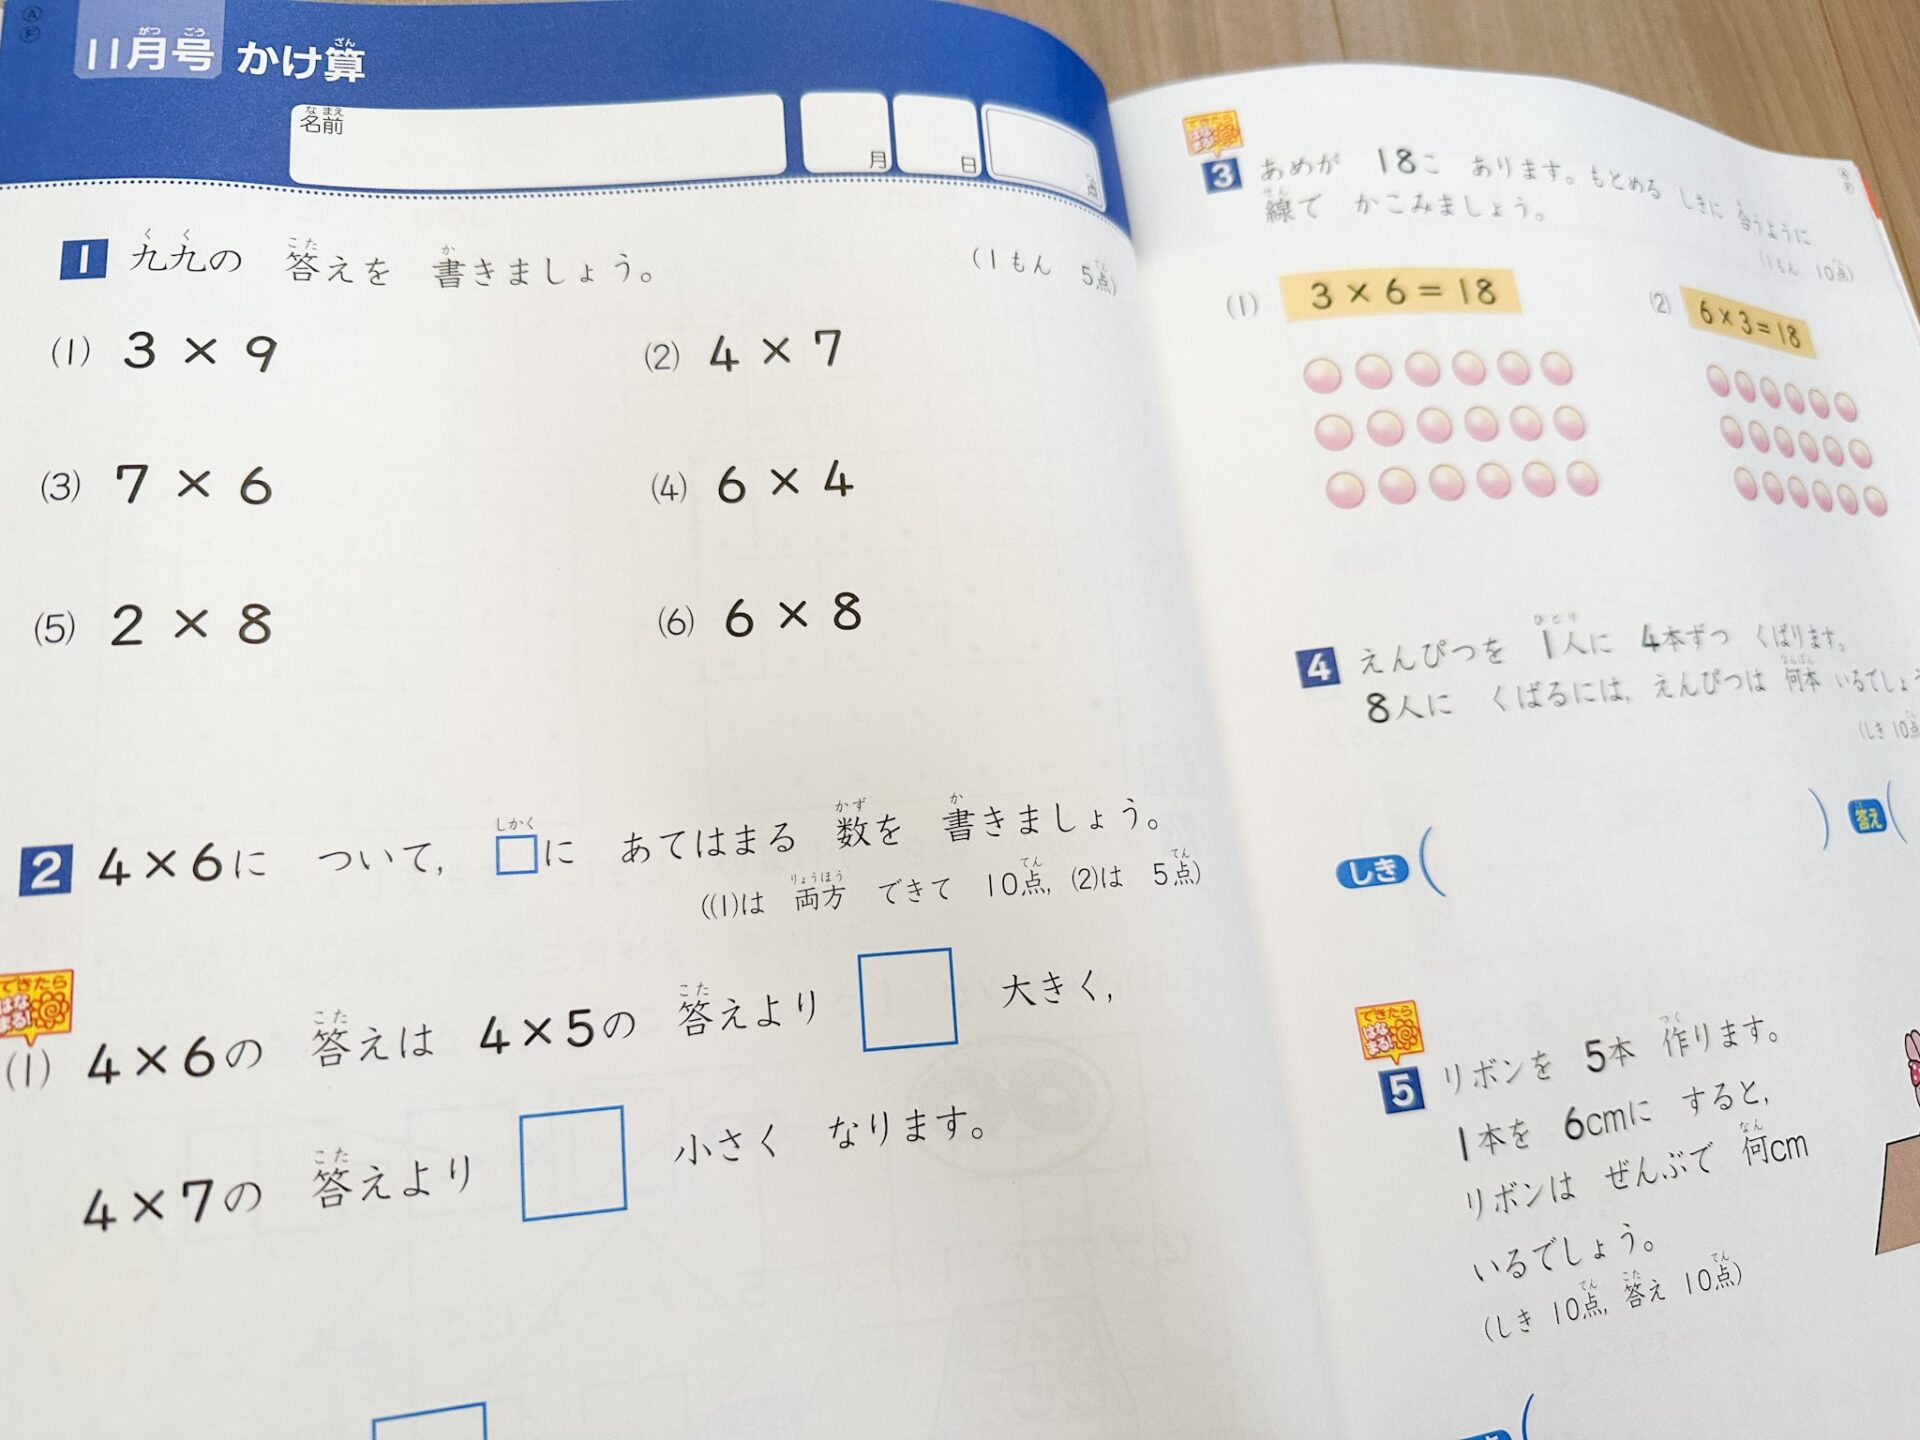 11月号 かけ算
がつ ごう ざん
名前
な まえ
月 日
1 九九の 答えを 書きましょう。
く く こた か
(1もん 5点)
てん
(1) 3 × 9
(2) 4 × 7
(3) 7 × 6
(4) 6 × 4
(5) 2 × 8
(6) 6 × 8
2 4×6に ついて, □に あてはまる 数を 書きましょう。
しかく かず か
((1)は 両方 できて 10点, (2)は 5点)
りょうほう てん てん
できたら
はな
まる!
(1) 4×6の 答えは 4×5の 答えより 大きく,
こた こた
4×7の 答えより 小さく なります。
こた
できたら
はな
まる!
3 あめが 18こ あります。もとめる しきに 合うように
線で かこみましょう。
せん
(1もん 10点)
てん
(1) 3×6=18
(2) 6×3=18
4 えんぴつを 1人に 4本ずつ くばります。
ひとり
8人に くばるには, えんぴつは 何本 いるでしょう
なんぼん
(しき 10点
てん
しき ( ) 答え (
できたら
はな
まる!
5 リボンを 5本 作ります。
つく
1本を 6cmに すると,
リボンは ぜんぶで 何cm
なん
いるでしょう。
(しき 10点, 答え 10点)
てん こた てん